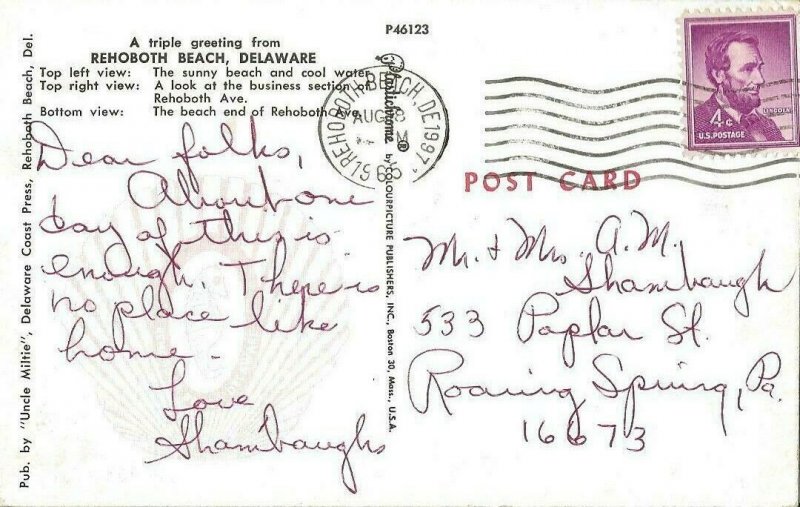 P46123
A triple greeting from
REHOBOTH BEACH, DELAWARE
Top left view: The sunny beach and cool water.
Top right view: A look at the business section of
Rehoboth Ave.
Bottom view: The beach end of Rehoboth Ave.
Dear folks,
About one
day of this is
enough. There is
no place like
home -
Love
Shambaughs
Pub. by "Uncle Miltie", Delaware Coast Press, Rehoboth Beach, Del.
Plastichrome ® by COLOURPICTURE PUBLISHERS, INC., Boston 30, Mass., U.S.A.
REHOBOTH BEACH, DE 1997
AUG
M
LINCOLN
4¢
U.S. POSTAGE
POST CARD
Mr. & Mrs. A. M.
Shambaugh
533 Poplar St.
Roaring Spring, Pa.
16673